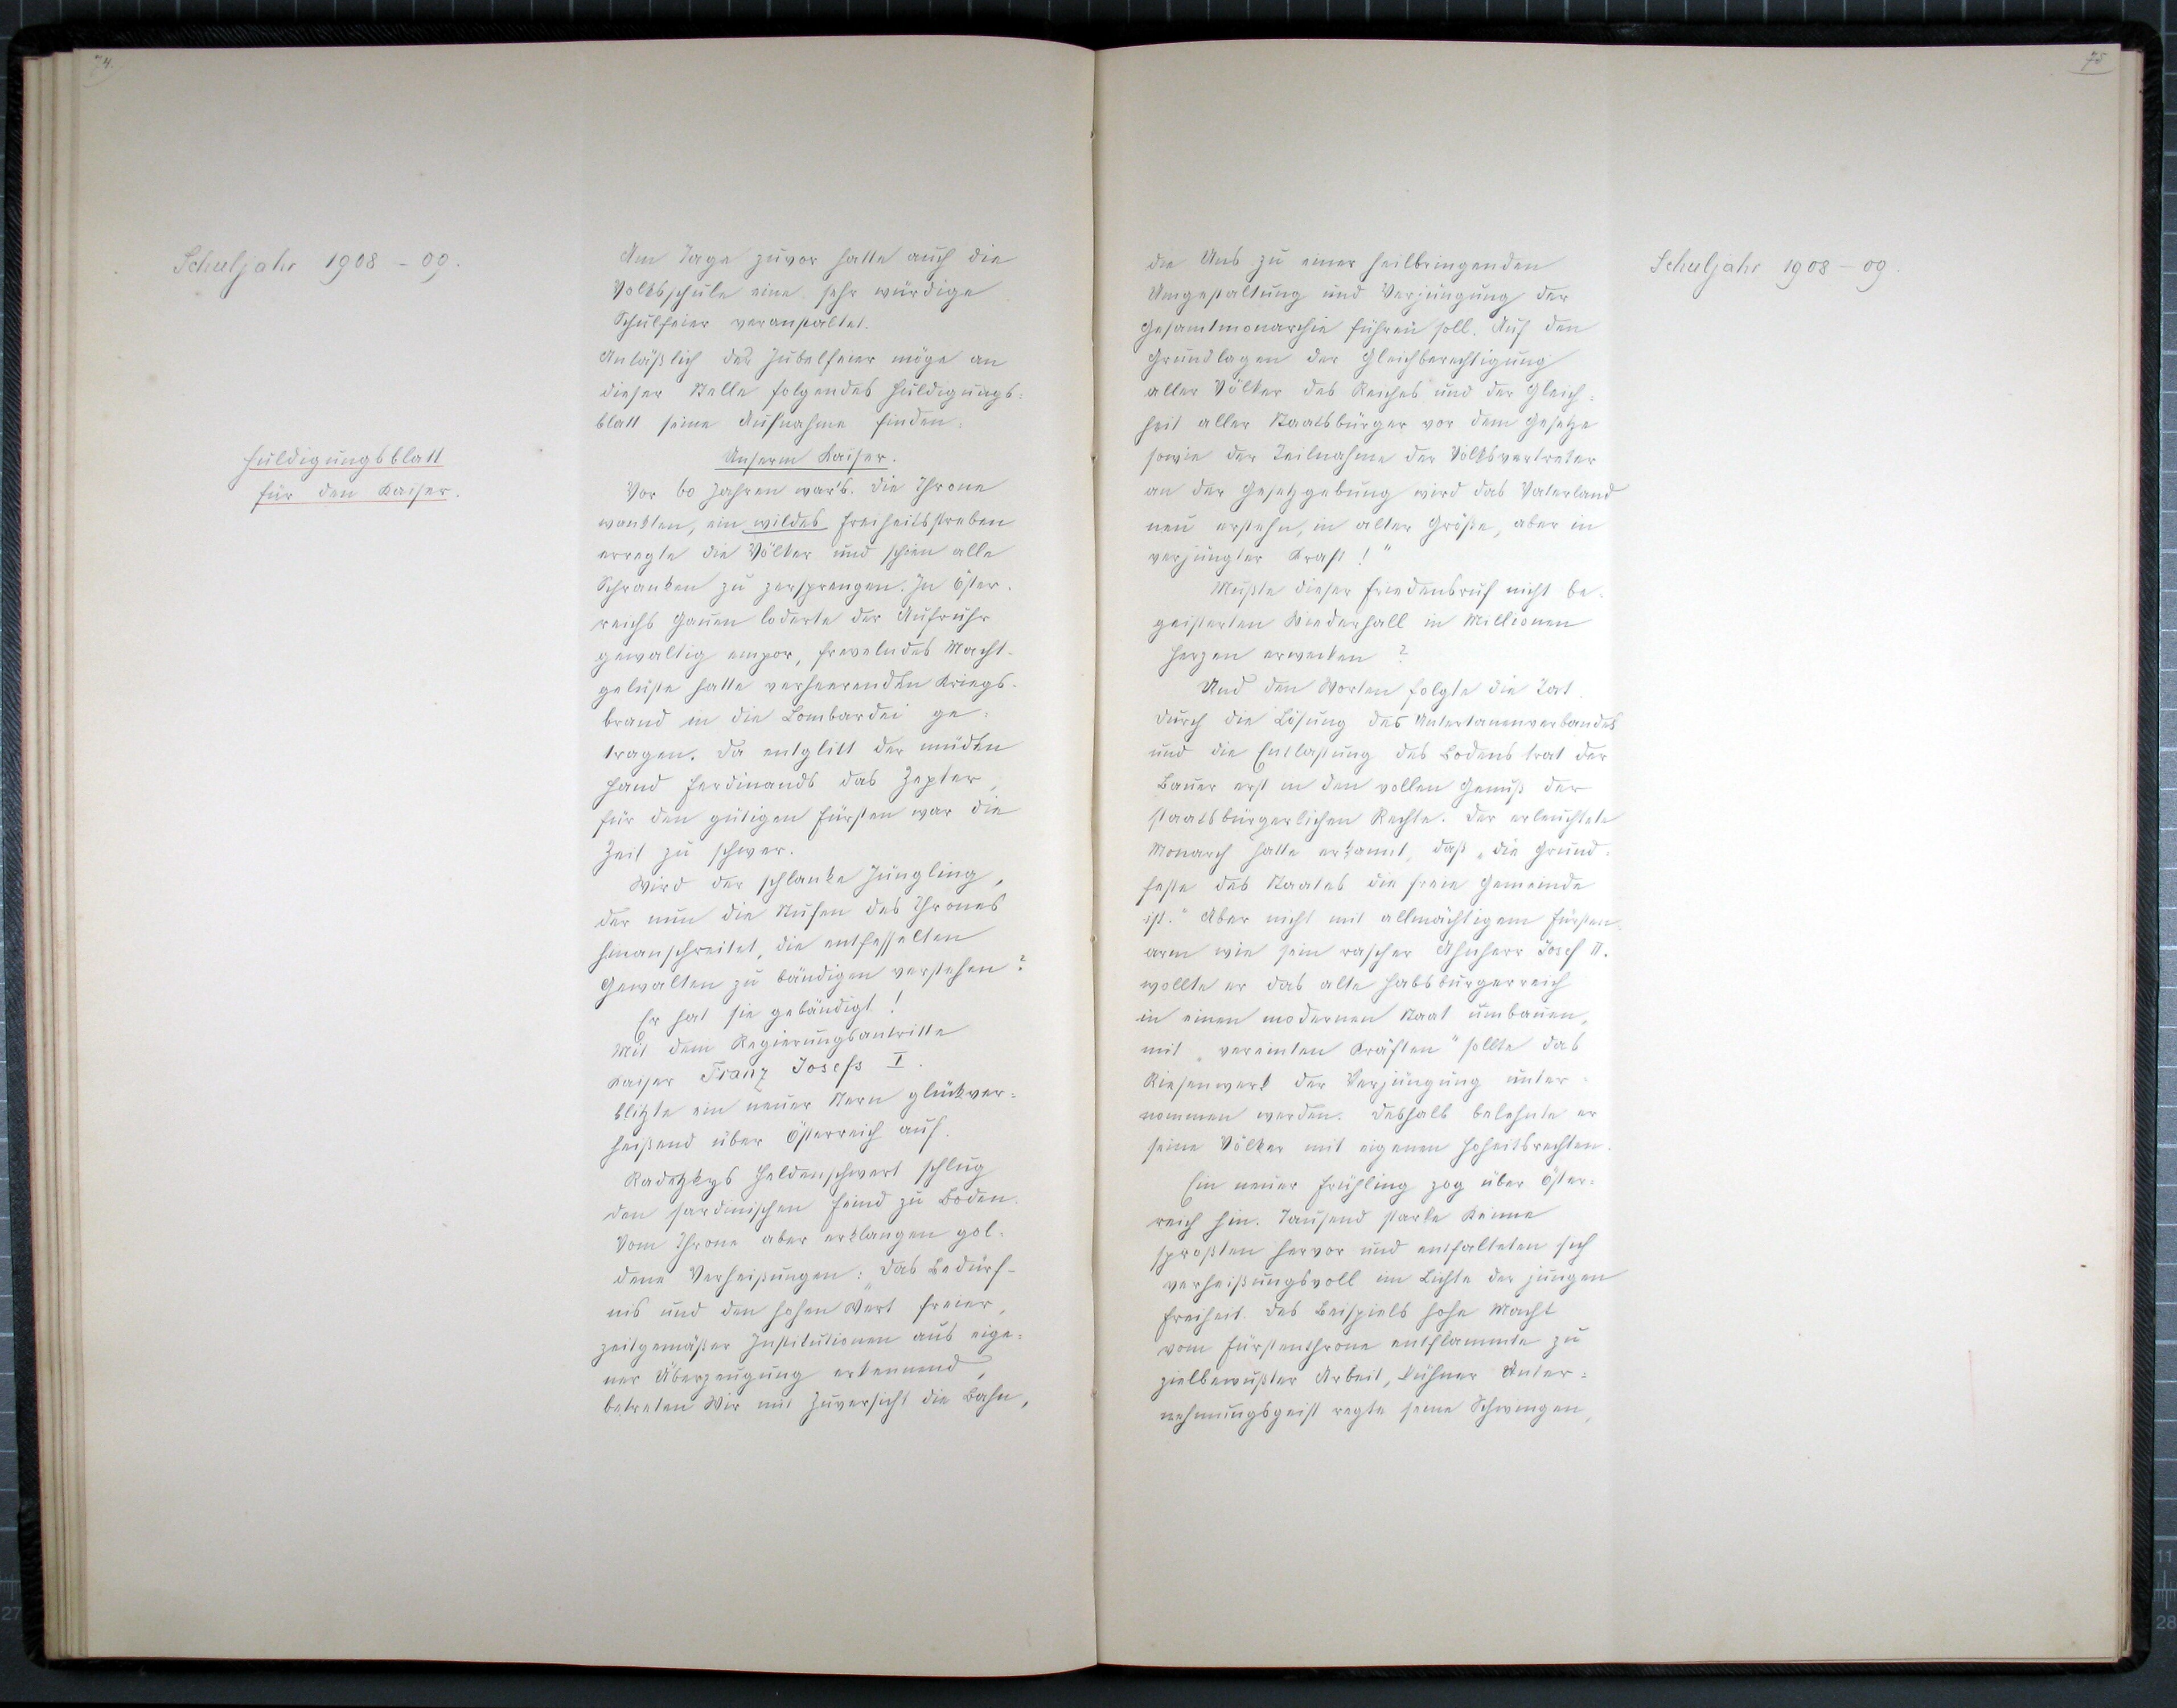 74.
Schuljahr 1908 - 09.
Huldigungsblatt
für den Kaiser.
Am Tage zuvor hatte auch die
Volksschule eine sehr würdige
Schulfeier veranstaltet.
Anläßlich der Jubelfeier möge an
dieser Stelle folgendes Huldigungs-
blatt seine Aufnahme finden:
Unserm Kaiser.
Vor 60 Jahren war's. Die Throne
wankten, ein wildes Freiheitsstreben
erregte die Völker und schien alle
Schranken zu zersprengen. In Öster-
reichs Gauen loderte der Aufruhr
gewaltig empor, frevelndes Macht-
gelüste hatte verheerenden Kriegs-
brand in die Lombardei ge-
tragen. Da entglitt der müden
Hand Ferdinands das Zepter,
für den gütigen Fürsten war die
Zeit zu schwer.
Wird der schlanke Jüngling,
der nun die Stufen des Thrones
hinanschreitet, die entfesselten
Gewalten zu bändigen verstehen?
Er hat sie gebändigt!
Mit dem Regierungsantritte
Kaiser Franz Josefs I.
blitzte ein neuer Stern glückver-
heißend über Österreich auf.
Radetzkys Heldenschwert schlug
den sardinischen Feind zu Boden.
Vom Throne aber erklangen gol-
dene Verheißungen: „Das Bedürf-
nis und den hohen Wert freier,
zeitgemäßer Institutionen aus eige-
ner Überzeugung erkennend,
betreten Wir mit Zuversicht die Bahn,
75
Schuljahr 1908 - 09.
die Uns zu einer heilbringenden
Umgestaltung und Verjüngung der
Gesamtmonarchie führen soll. Auf den
Grundlagen der Gleichberechtigung
aller Völker des Reiches und der Gleich-
heit aller Staatsbürger vor dem Gesetze
sowie der Teilnahme der Volksvertreter
an der Gesetzgebung wird das Vaterland
neu erstehn, in alter Größe, aber in
verjüngter Kraft!"
Mußte dieser Friedensruf nicht be-
geisterten Wiederhall in Millionen
Herzen erwecken?
Und den Worten folgte die Tat.
Durch die Lösung des Untertanenverbandes
und die Entlastung des Bodens trat der
Bauer erst in den vollen Genuß der
staatsbürgerlichen Rechte. Der erleuchtete
Monarch hatte erkannt, daß „die Grund-
feste des Staates die freie Gemeinde
ist." Aber nicht mit allmächtigem Fürsten-
arm wie sein rascher Ahnherr Josef II.
wollte er das alte Habsburgerreich
in einen modernen Staat umbauen,
mit „vereinten Kräften" sollte das
Riesenwerk der Verjüngung unter-
nommen werden. Deshalb belehnte er
seine Völker mit eigenen Hoheitsrechten.
Ein neuer Frühling zog über Öster-
reich hin. Tausend starke Keime
sproßten hervor und entfalteten sich
verheißungsvoll im Lichte der jungen
Freiheit. Des Beispiels hohe Macht
vom Fürstenthrone entflammte zu
zielbewußter Arbeit, kühner Unter-
nehmungsgeist regte seine Schwingen,